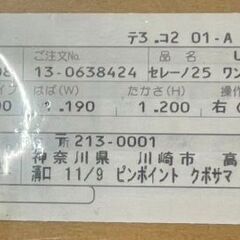 テ3.コ2 01-A
ご注文 U
08 13-0638424 セレーノ25 ワン
イプ はば(W) たかさ(H) 操作
00 2.190 1.200 右(
〒213-0001
神奈川県 川崎市 高
溝口 11/9 ピンポイント クボサマ